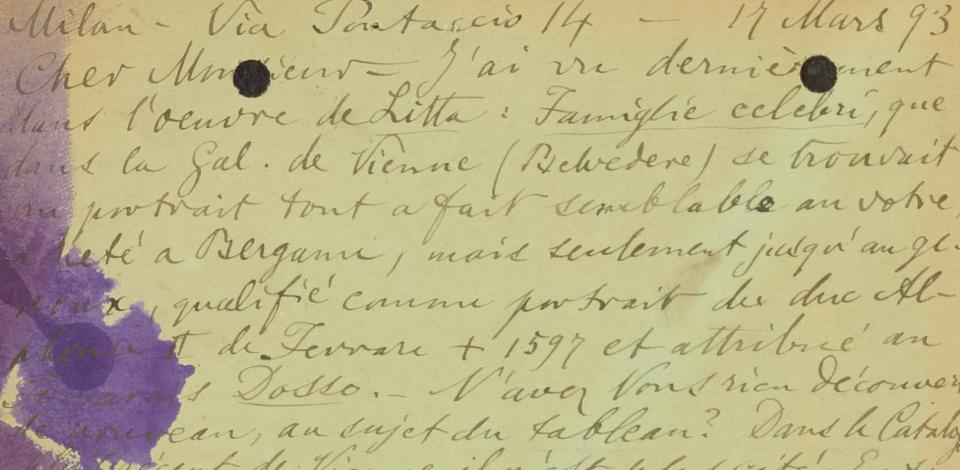 Milan - Via Pontaccio 14 - 17 Mars 93
Cher Monsieur - J'ai vu dernièrement
dans l'oeuvre de Litta : Famiglie celebri, que
dans la Gal. de Vienne (Belvedere) se trouvait
un portrait tout a fait semblable au votre,
acheté a Bergame, mais seulement jusqu'au ge-
noux, qualifié comme portrait du duc Al-
phonse II de Ferrare + 1597 et attribué au
Ferrarais Dosso. - N'avez Vous rien découvert
de nouveau, au sujet du tableau? Dans le Catalog
de Vienne il n'est